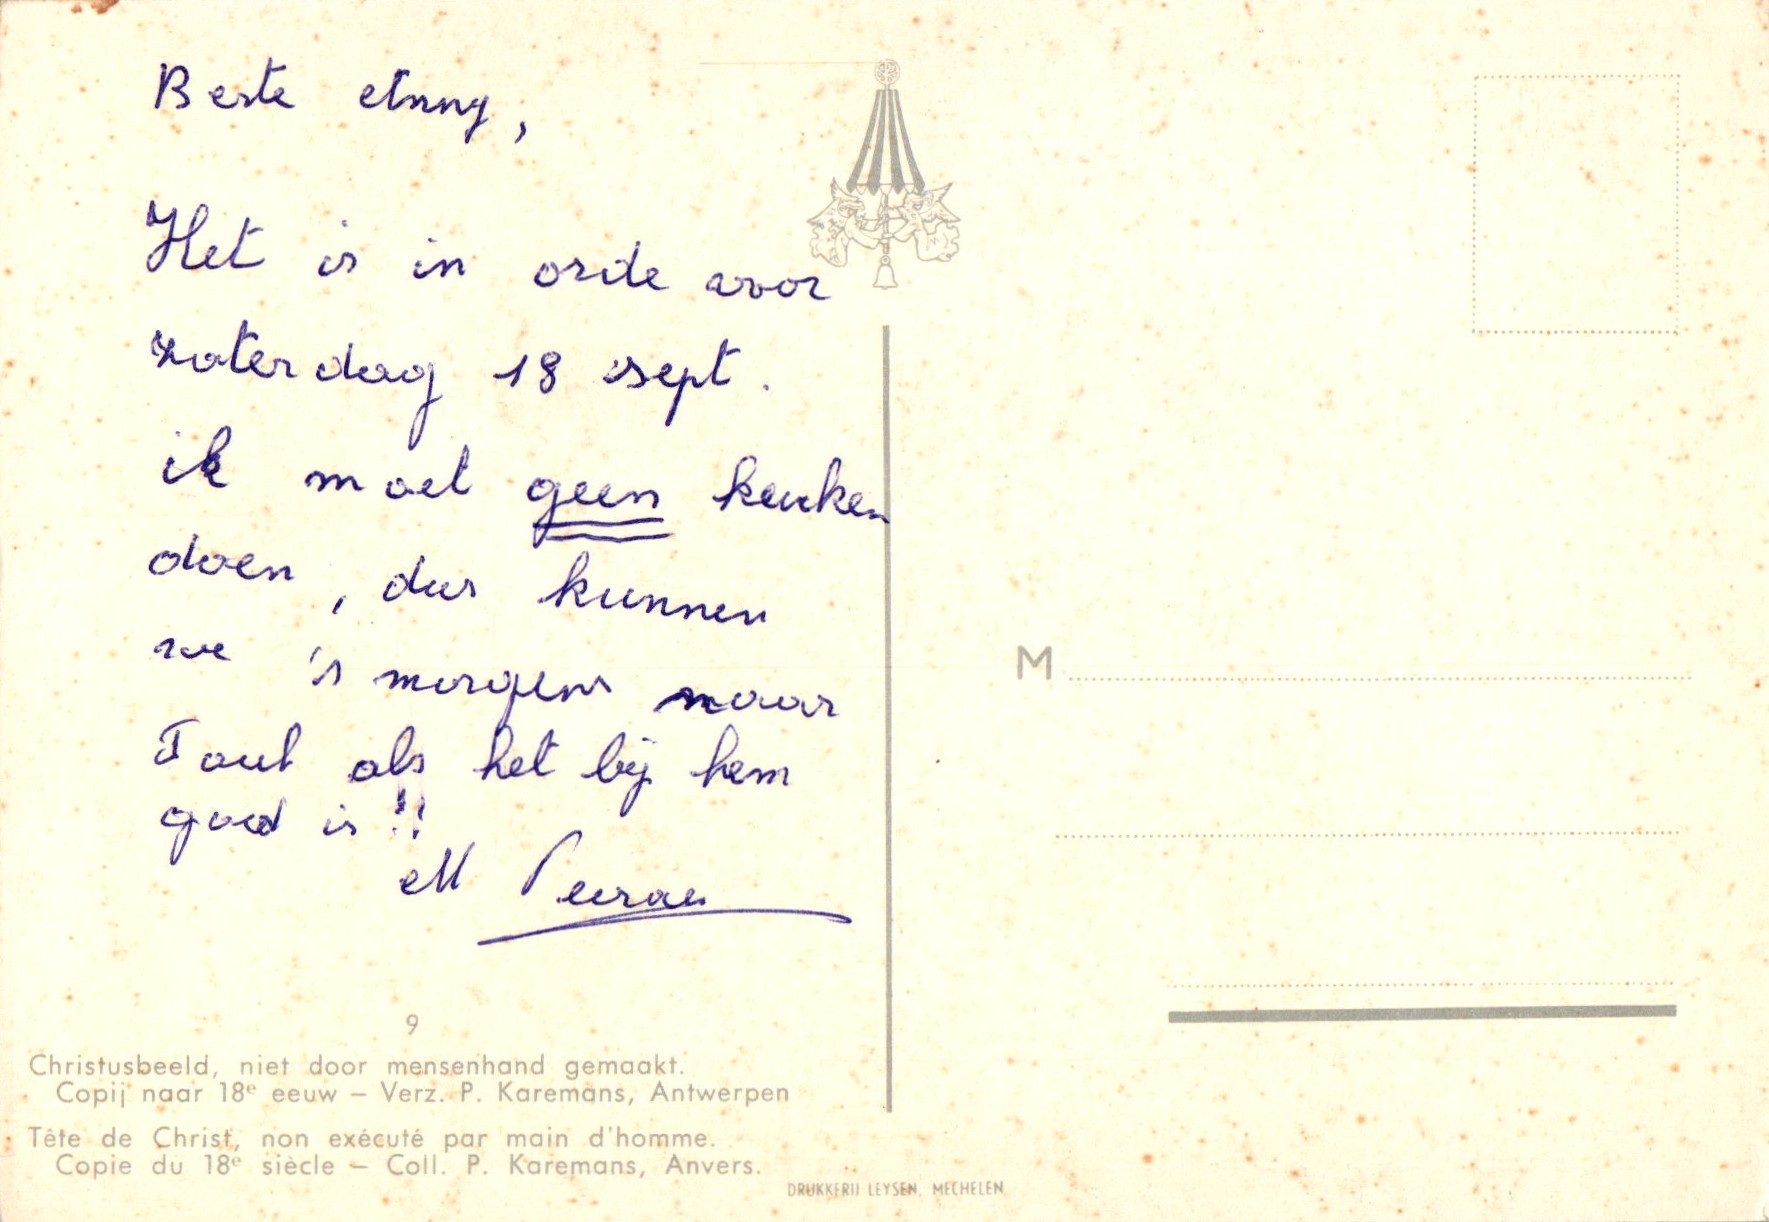 Beste Anny,
Het is in orde voor
zaterdag 18 sept.
ik moet geen keuken
doen, dus kunnen
we 's morgens naar
Paul als het bij hem
goed is !!
M
9
Christusbeeld, niet door mensenhand gemaakt.
Copij naar 18e eeuw – Verz. P. Karemans, Antwerpen
Tête de Christ, non exécuté par main d'homme.
Copie du 18e siècle – Coll. P. Karemans, Anvers.
DRUKKERIJ LEYSEN, MECHELEN
M